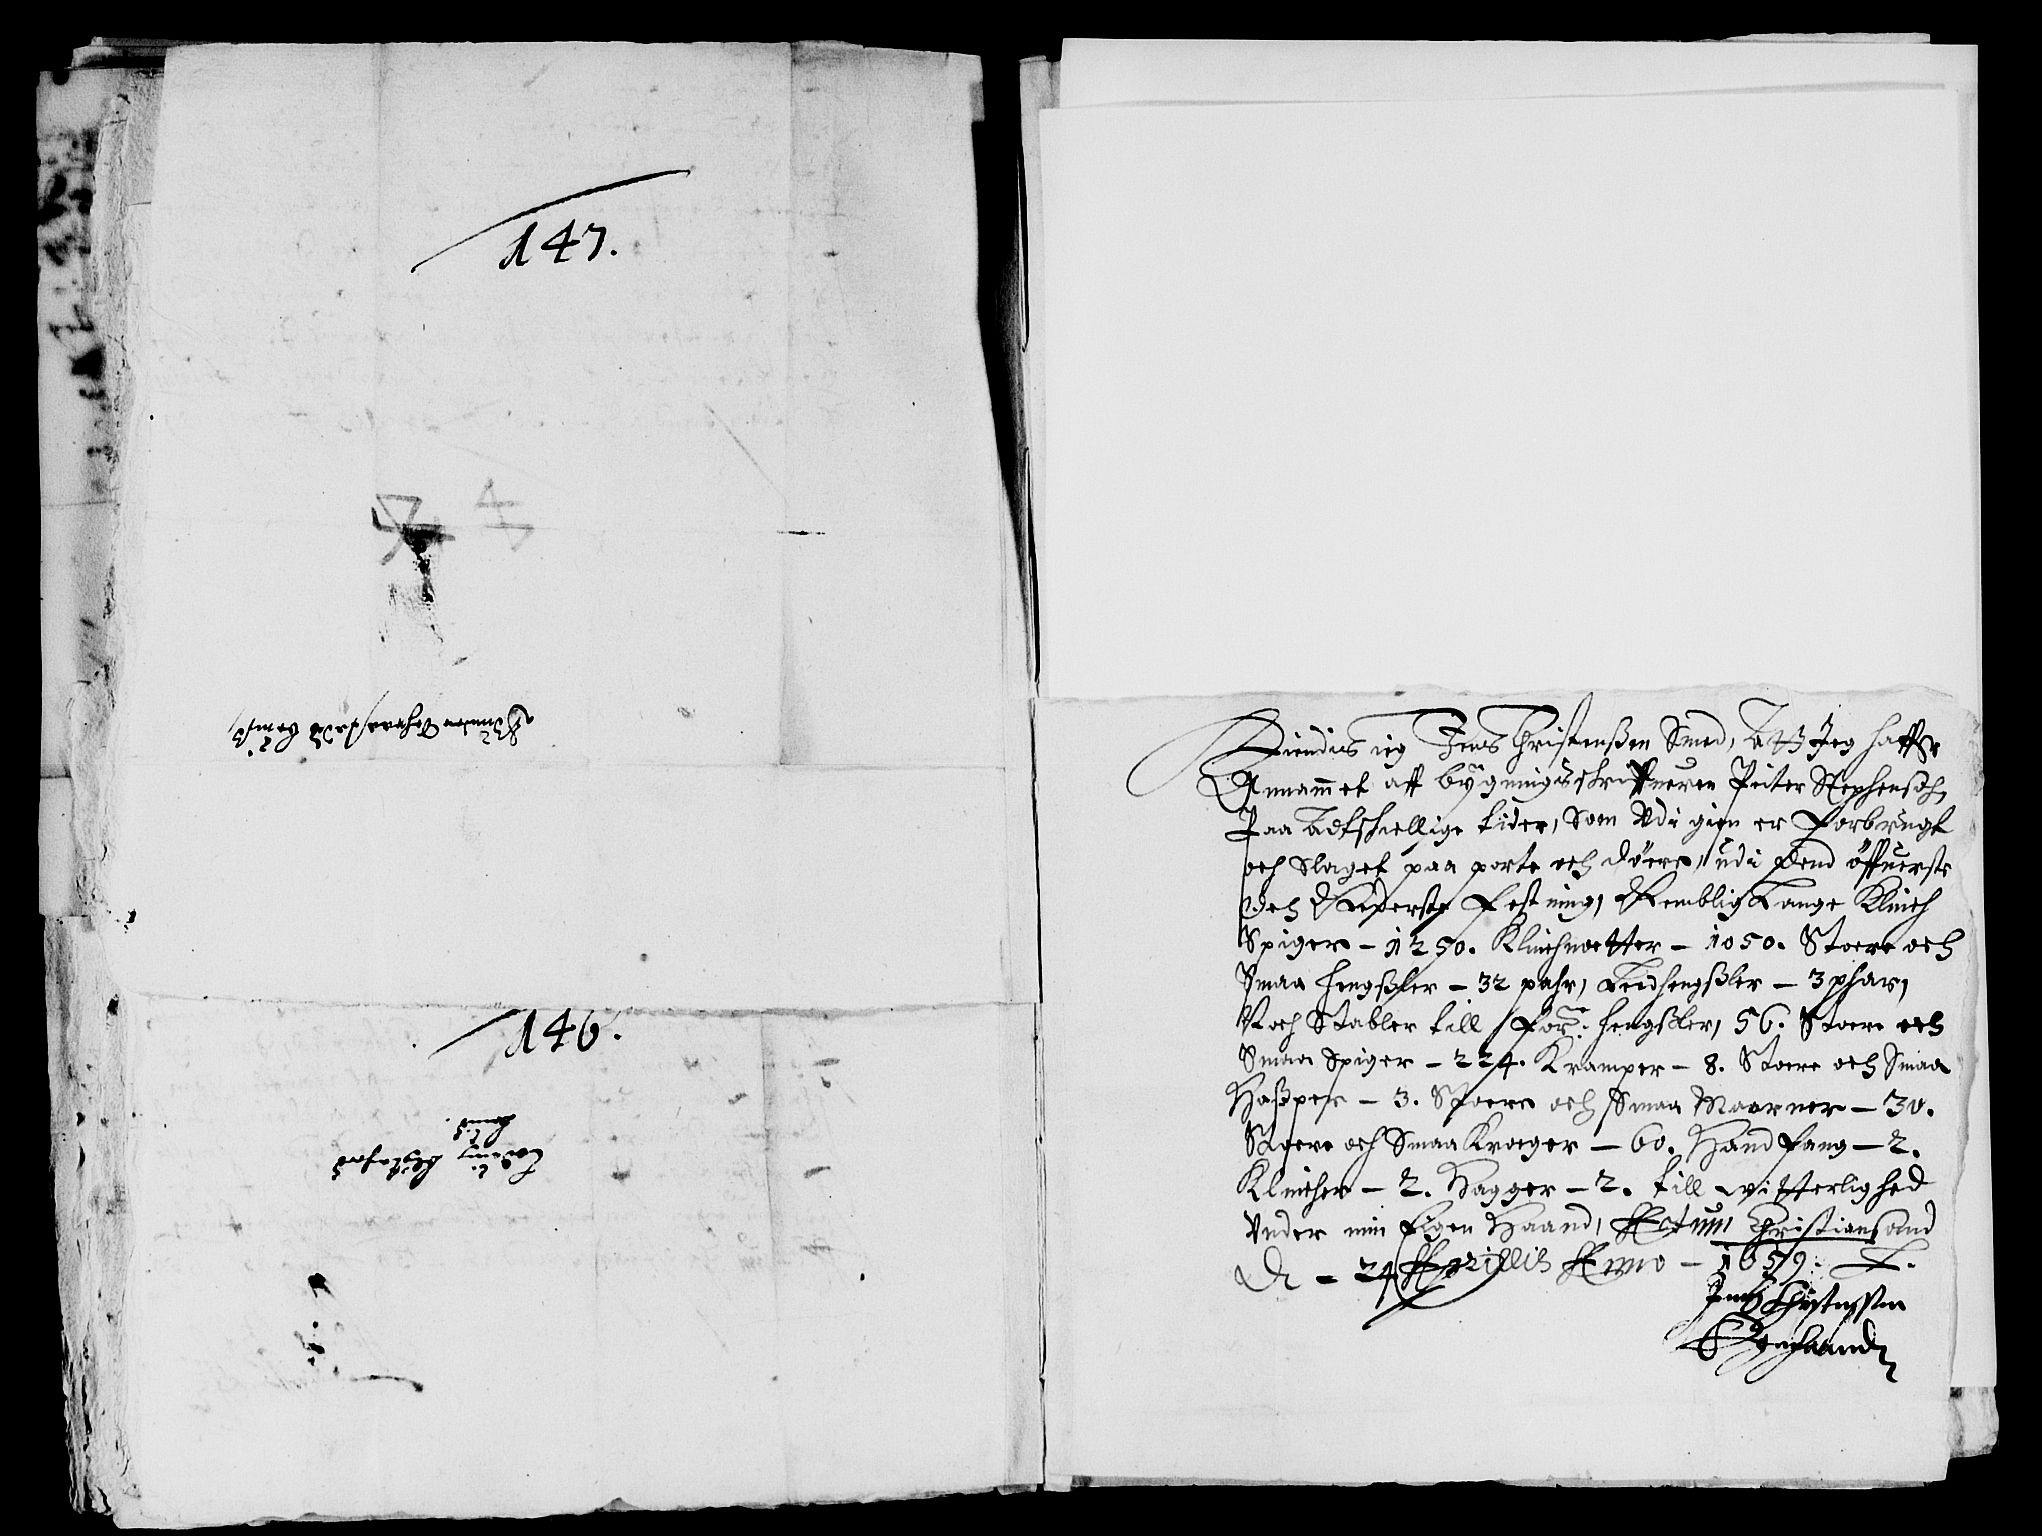 147.
146.
Kiendis ieg Jens Christenßen Smed, At Jeg haffr
Annammet aff bygningsskriffueren Peiter Stephensøn,
Paa Adtschellige tider, Som Vdi gien er Forbrugt
och Slaget paa porte och døere, udi dend öffuerste
och Nederste Festning, Nemblig Lange Klinch
Spiger - 1250. Klinchnotter - 1050. Stoere och
Smaa hengßler - 32 pahr, Ledhengßler - 3 phar,
Noch Stabler till for: hengßler, 56. Stoere och
Smaa Spiger - 224. Kramper - 8. Stoere och Smaa
Haßper - 3. Stoere och Smaa Maarner - 30.
Stoere och Smaa Kroeger - 60. Handfang - 2.
Klincher - 2. Hagger - 2. till witterlighed
Vnder min Eigen Haand, Actum Christiansand
d - 24 Aprillis Anno - 1659.
Jens Christenssen
Egenhaand